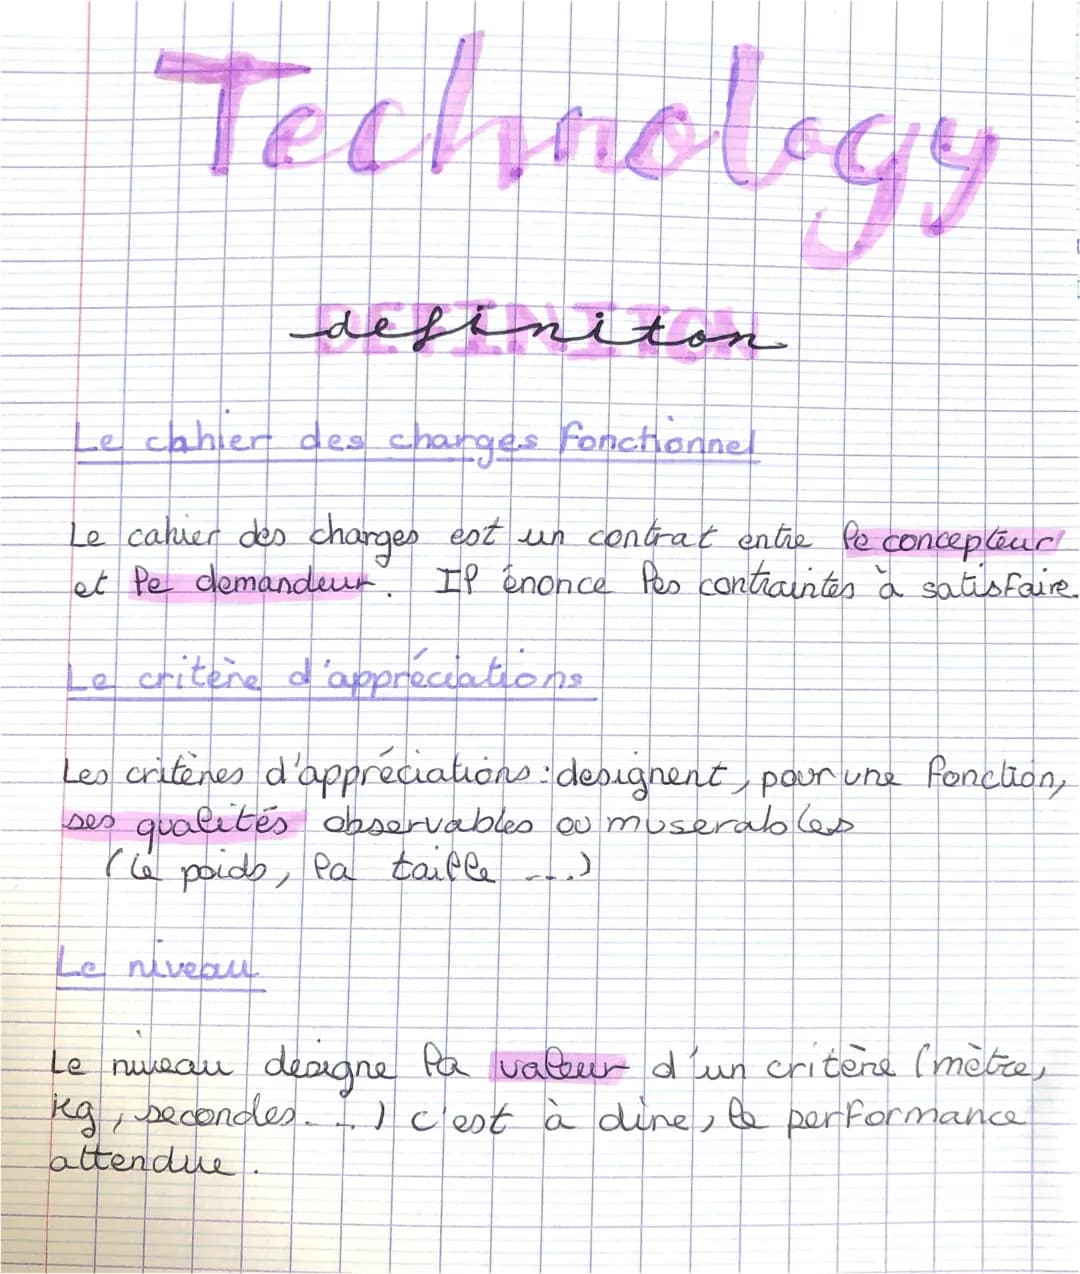 Technology
definiton
Le cahier des charges fonctionnel
Le cahier des charges est un contrat entre le concepteur
et le demandeur. Il énonce les contraintes à satisfaire.
Le critère d'appréciations
Les critères d'appréciations : designent, pour une fonction,
ses qualités observables ou muserables
(le poids, la taille ....)
Le niveau
Le niveau designe la valeur d'un critère (mètre,
kg, secondes....) c'est à dire, le performance
attendue.